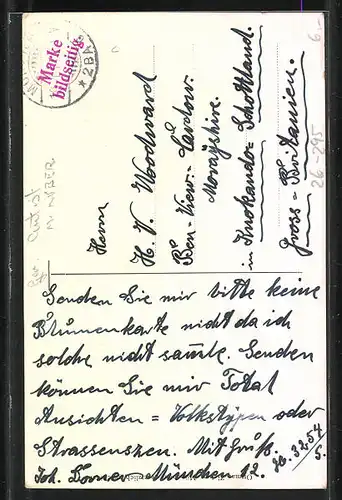 Marke
bildseitig.
*2BN*
Herrn
H. V. Woodward
Ben-View-Cardow
Morayshire.
in Knokando-Schottland.
Gross-Britanien.
26-295
6.-
Senden Sie mir bitte keine
Blumenkarte nicht da ich
solche nicht samle. Senden
können Sie mir Total
Ansichten = Volkstypen oder
Strassenszen. Mit Gruß.
Joh. Borner München 12.